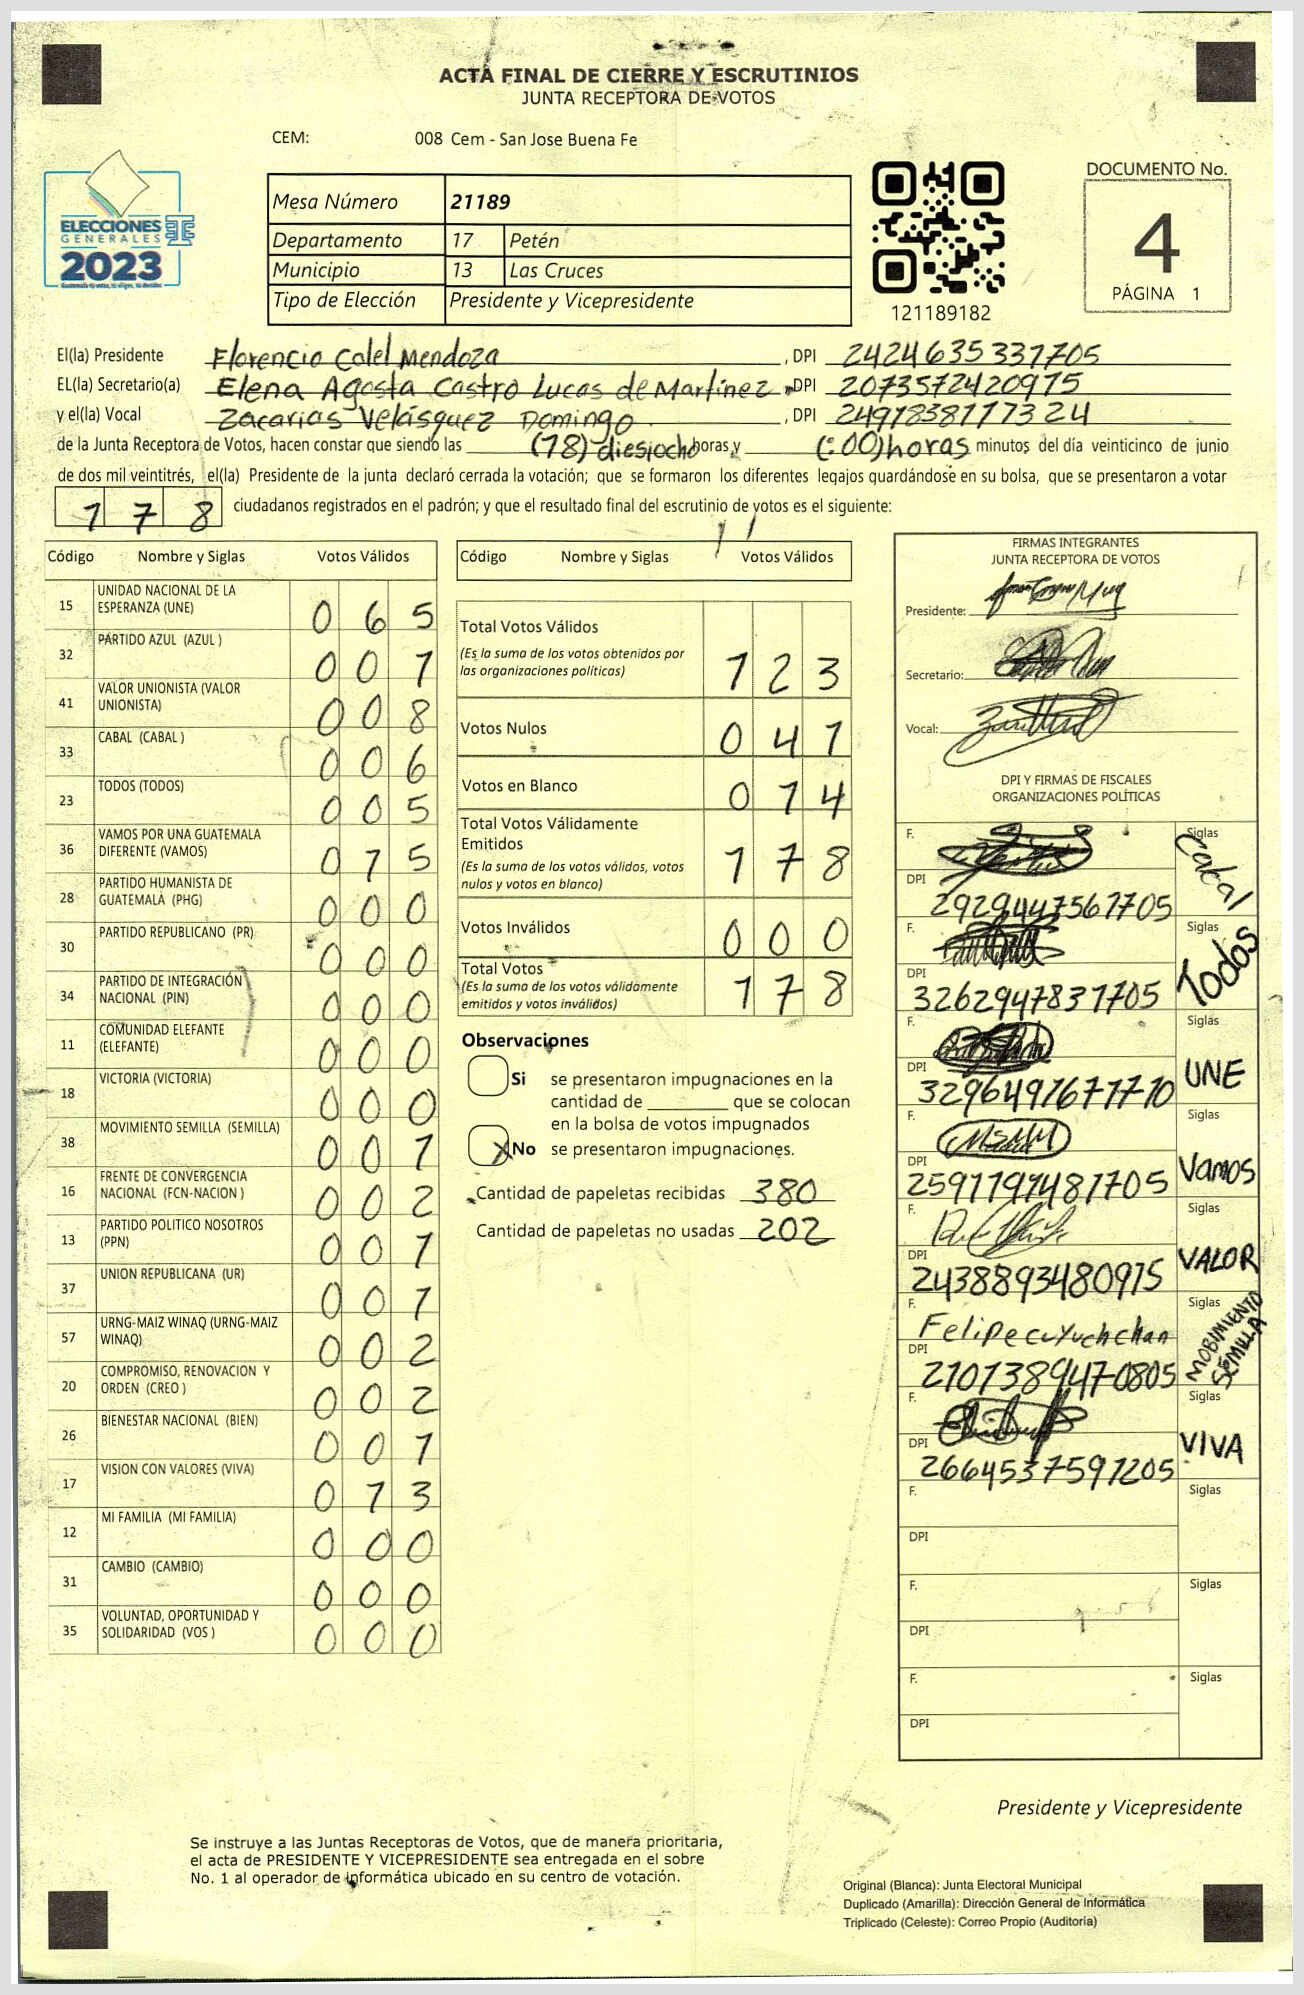 ACTA FINAL DE CIERRE Y ESCRUTINIOS
JUNTA RECEPTORA DE VOTOS
CEM: 008 Cem - San Jose Buena Fe
ELECCIONES
GENERALES
2023
Mesa Número 21189
Departamento 17 Petén
Municipio 13 Las Cruces
Tipo de Elección Presidente y Vicepresidente
121189182
DOCUMENTO No.
4
PÁGINA 1
El(la) Presidente Florencio Calel Mendoza , DPI 2424635331705
EL(la) Secretario(a) Elena Agosta Castro Lucas de Martinez , DPI 2073572420915
y el(la) Vocal Zacarias Velásquez Domingo , DPI 2491838117324
de la Junta Receptora de Votos, hacen constar que siendo las (18) diesiocho horas y (:00) horas minutos del día veinticinco de junio
de dos mil veintitrés, el(la) Presidente de la junta declaró cerrada la votación; que se formaron los diferentes legajos guardándose en su bolsa, que se presentaron a votar
1 7 8 ciudadanos registrados en el padrón; y que el resultado final del escrutinio de votos es el siguiente:
Código Nombre y Siglas Votos Válidos
15 UNIDAD NACIONAL DE LA ESPERANZA (UNE) 0 6 5
32 PARTIDO AZUL (AZUL ) 0 0 1
41 VALOR UNIONISTA (VALOR UNIONISTA) 0 0 8
33 CABAL (CABAL ) 0 0 6
23 TODOS (TODOS) 0 0 5
36 VAMOS POR UNA GUATEMALA DIFERENTE (VAMOS) 0 1 5
28 PARTIDO HUMANISTA DE GUATEMALA (PHG) 0 0 0
30 PARTIDO REPUBLICANO (PR) 0 0 0
34 PARTIDO DE INTEGRACIÓN NACIONAL (PIN) 0 0 0
11 COMUNIDAD ELEFANTE (ELEFANTE) 0 0 0
18 VICTORIA (VICTORIA) 0 0 0
38 MOVIMIENTO SEMILLA (SEMILLA) 0 0 1
16 FRENTE DE CONVERGENCIA NACIONAL (FCN-NACION ) 0 0 2
13 PARTIDO POLITICO NOSOTROS (PPN) 0 0 1
37 UNION REPUBLICANA (UR) 0 0 1
57 URNG-MAIZ WINAQ (URNG-MAIZ WINAQ) 0 0 2
20 COMPROMISO, RENOVACION Y ORDEN (CREO ) 0 0 2
26 BIENESTAR NACIONAL (BIEN) 0 0 1
17 VISION CON VALORES (VIVA) 0 1 3
12 MI FAMILIA (MI FAMILIA) 0 0 0
31 CAMBIO (CAMBIO) 0 0 0
35 VOLUNTAD, OPORTUNIDAD Y SOLIDARIDAD (VOS ) 0 0 0
Código Nombre y Siglas Votos Válidos
Total Votos Válidos 1 2 3
(Es la suma de los votos obtenidos por
las organizaciones políticas)
Votos Nulos 0 4 1
Votos en Blanco 0 1 4
Total Votos Válidamente
Emitidos 1 7 8
(Es la suma de los votos válidos, votos
nulos y votos en blanco)
Votos Inválidos 0 0 0
Total Votos 1 7 8
(Es la suma de los votos válidamente
emitidos y votos inválidos)
Observaciones
Si se presentaron impugnaciones en la
cantidad de ________ que se colocan
en la bolsa de votos impugnados
X No se presentaron impugnaciones.
Cantidad de papeletas recibidas 380
Cantidad de papeletas no usadas 202
FIRMAS INTEGRANTES
JUNTA RECEPTORA DE VOTOS
Presidente:
Secretario:
Vocal:
DPI Y FIRMAS DE FISCALES
ORGANIZACIONES POLÍTICAS
F. Siglas Cabal
DPI 2929447561705
F. Siglas Todos
DPI 3262947831705
F. Siglas UNE
DPI 3296491671710
F. Siglas Vamos
DPI 2591191481705
F. Siglas VALOR
DPI 2438893480915
F. Felipe cuyuchchan Siglas MOBIMIENTO SEMILLA
DPI 2101389470805
F. Siglas VIVA
DPI 2664537591205
F. Siglas
DPI
F. Siglas
DPI
F. Siglas
DPI
Presidente y Vicepresidente
Se instruye a las Juntas Receptoras de Votos, que de manera prioritaria,
el acta de PRESIDENTE Y VICEPRESIDENTE sea entregada en el sobre
No. 1 al operador de informática ubicado en su centro de votación.
Original (Blanca): Junta Electoral Municipal
Duplicado (Amarilla): Dirección General de Informática
Triplicado (Celeste): Correo Propio (Auditoría)